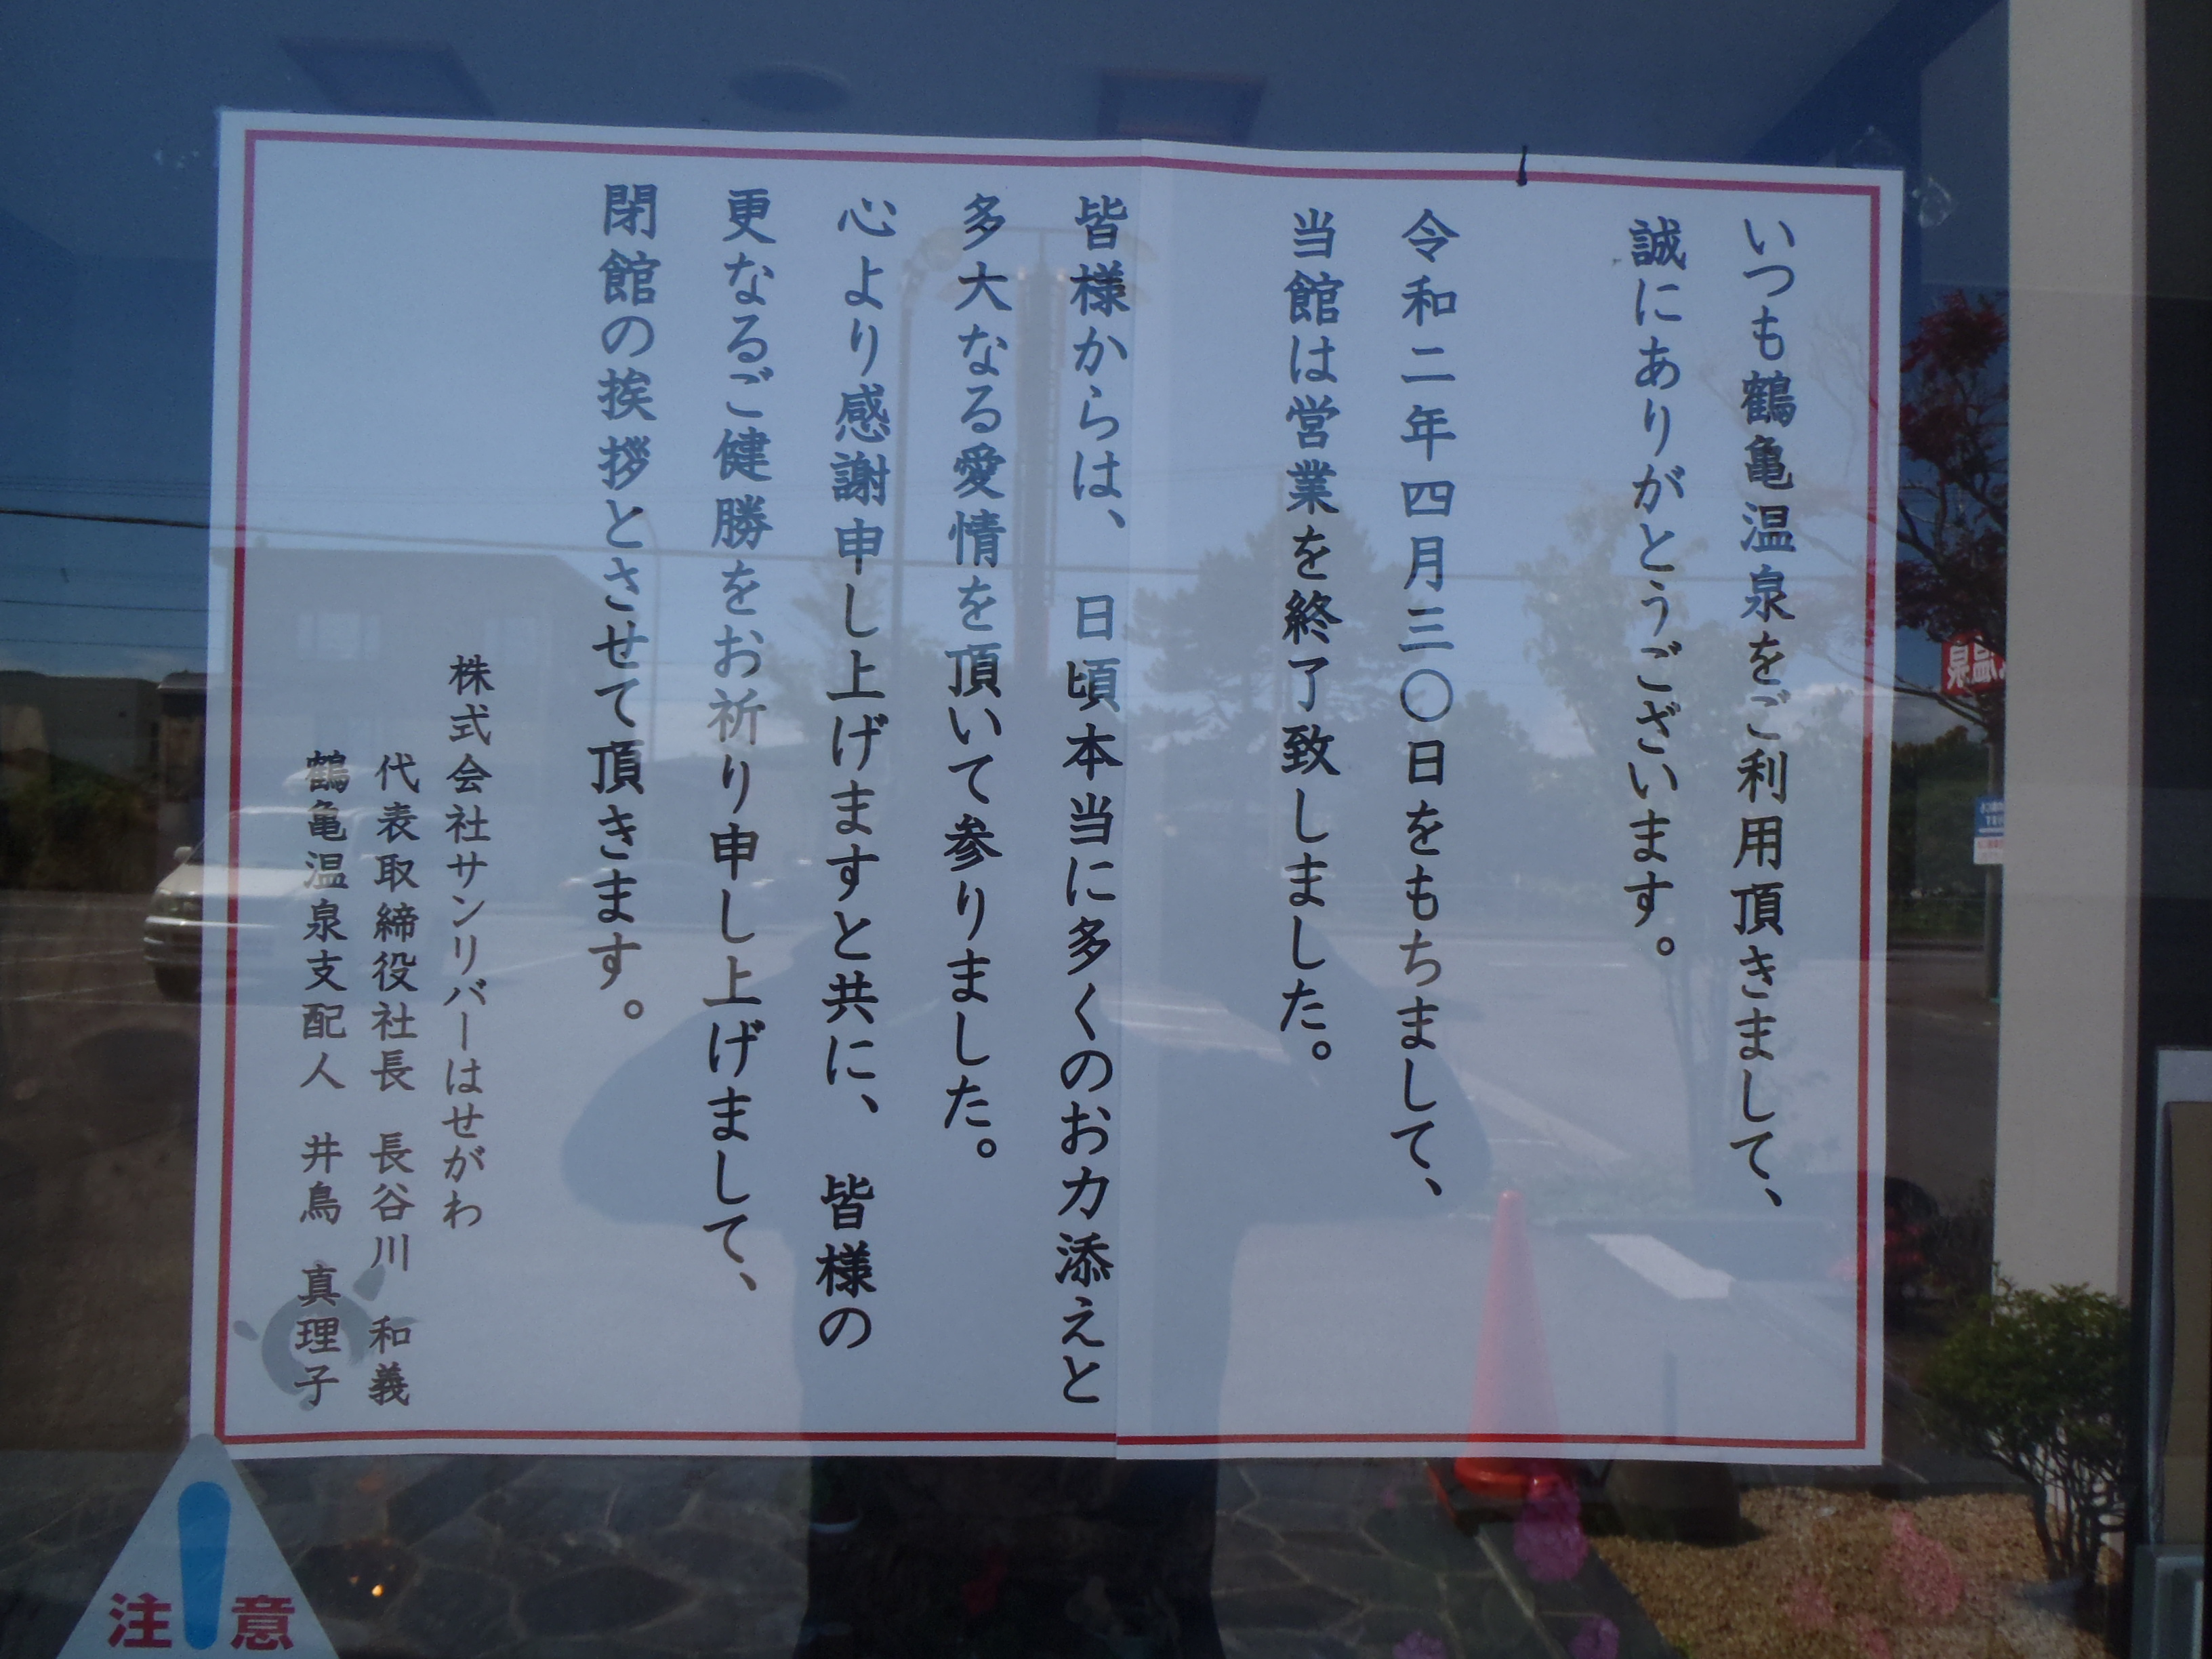 いつも鶴亀温泉をご利用頂きまして、
誠にありがとうございます。
令和二年四月三〇日をもちまして、
当館は営業を終了致しました。
皆様からは、日頃本当に多くのお力添えと
多大なる愛情を頂いて参りました。
心より感謝申し上げますと共に、皆様の
更なるご健勝をお祈り申し上げまして、
閉館の挨拶とさせて頂きます。
株式会社サンリバーはせがわ
代表取締役社長 長谷川 和義
鶴亀温泉支配人 井鳥 真理子
注意